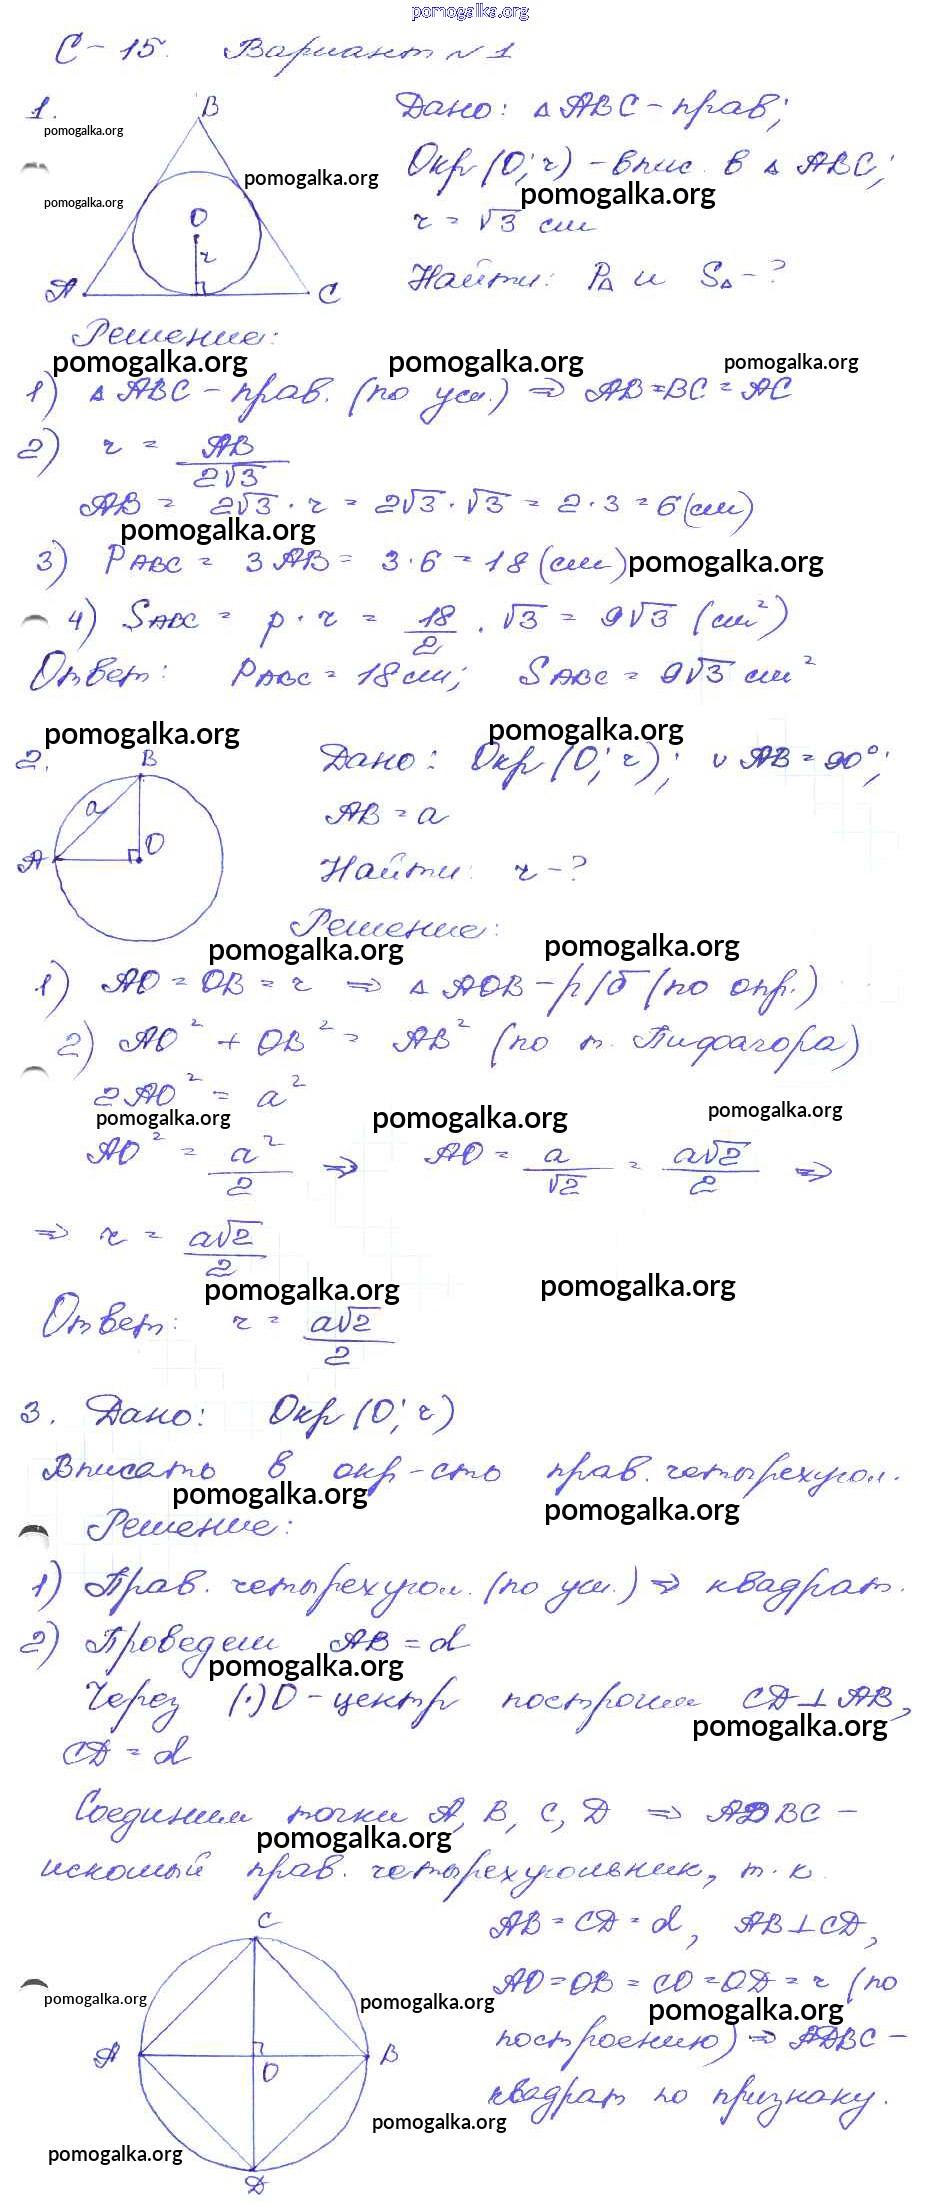 pomogalka.org
С-15. Вариант №1
1.
B
O
r
A
C
Дано: △ABC - прав;
Окр(O; r) - впис. в △ABC;
r = √3 см
Найти: P△ и S△ - ?
pomogalka.org
pomogalka.org
pomogalka.org
pomogalka.org
Решение:
pomogalka.org pomogalka.org pomogalka.org
1) △ABC - прав. (по усл.) ⇒ AB = BC = AC
2) r = AB/2√3
AB = 2√3 · r = 2√3 · √3 = 2 · 3 = 6 (см)
pomogalka.org
3) PABC = 3AB = 3 · 6 = 18 (см) pomogalka.org
4) SABC = p · r = 18/2 · √3 = 9√3 (см²)
Ответ: PABC = 18 см; SABC = 9√3 см²
pomogalka.org pomogalka.org
2.
B
a
O
A
Дано: Окр(O; r); ∪AB = 90°;
AB = a
Найти: r - ?
Решение:
pomogalka.org pomogalka.org
1) AO = OB = r ⇒ △AOB - р/б (по опр.)
2) AO² + OB² = AB² (по т. Пифагора)
2AO² = a²
pomogalka.org pomogalka.org pomogalka.org
AO² = a²/2 ⇒ AO = a/√2 = a√2/2 ⇒
⇒ r = a√2/2
pomogalka.org pomogalka.org
Ответ: r = a√2/2
3. Дано: Окр(O; r)
Вписать в окр-сть прав. четырехугол.
pomogalka.org pomogalka.org
Решение:
1) Прав. четырехугол. (по усл.) ⇒ квадрат.
2) Проведем AB = d
pomogalka.org
Через (·)O - центр построим CD ⊥ AB,
pomogalka.org
CD = d
Соединим точки A, B, C, D ⇒ ADBC -
pomogalka.org
искомый прав. четырехугольник, т.к.
AB = CD = d, AB ⊥ CD,
AO = OB = CO = OD = r (по
построению) ⇒ ADBC -
квадрат по признаку.
C
A
O
B
D
pomogalka.org pomogalka.org pomogalka.org
pomogalka.org
pomogalka.org